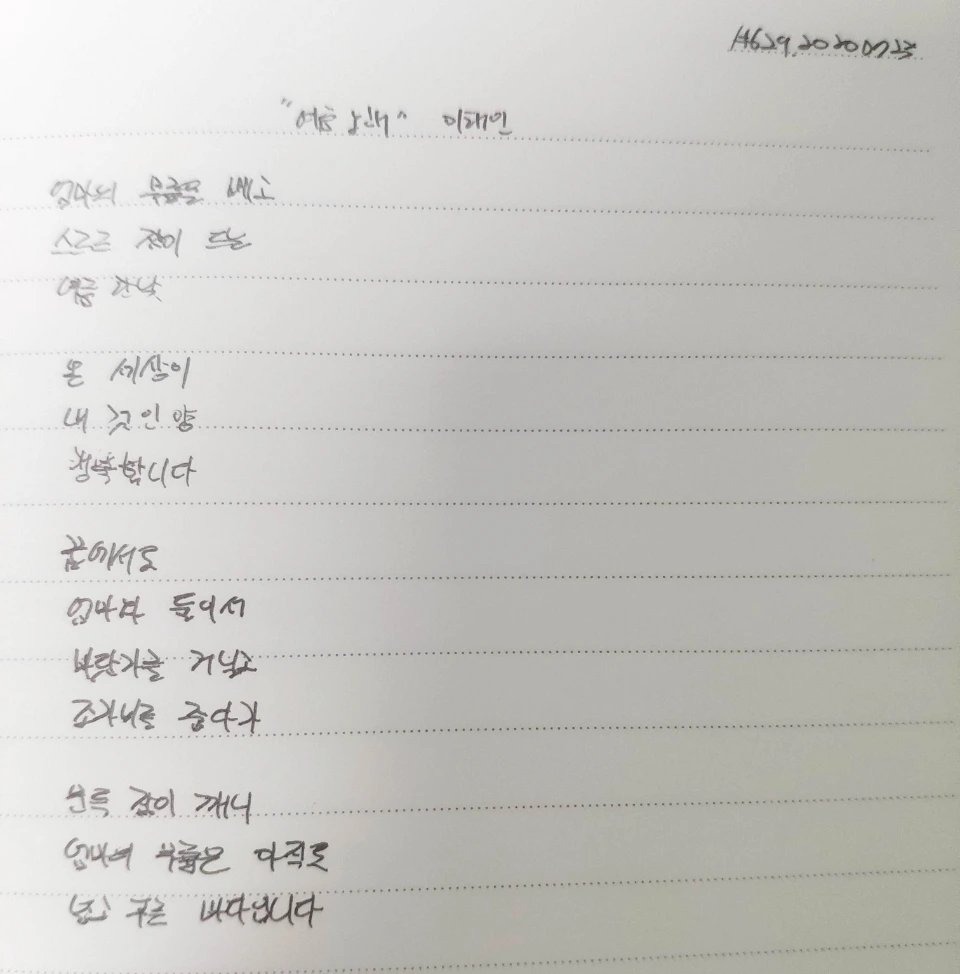 #629.20200723
"여름 노래" 이해인
엄마의 무릎을 베고
스르르 잠이 드는
여름 한낮
온 세상이
내 것인 양
행복합니다
꿈에서도
엄마와 둘이서
바닷가를 거닐고
조가비를 줍다가
문득 잠이 깨니
엄마의 무릎은 아직도
넓고 푸른 바다입니다